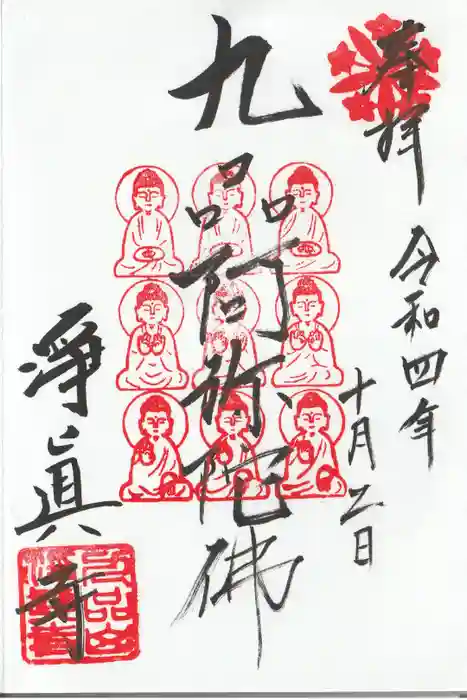 奉拝
令和四年
十月二日
九品阿弥陀佛
淨眞寺